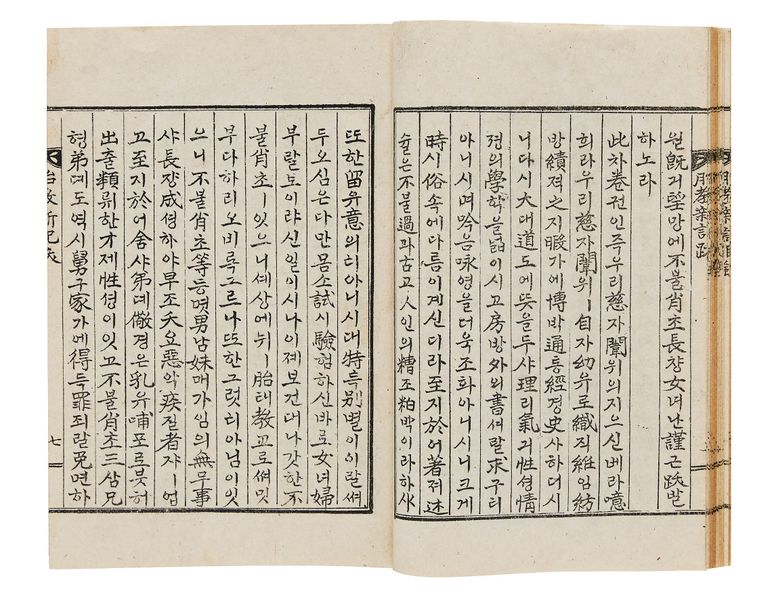 월旣긔望망에不불肖초長쟝女녀난謹근跋발
하노라
此차卷권인즉우리慈자闈위의지으신베라噫
희라우리慈자闈위ㅣ自자幼유로織직絍임紡
방績젹之지暇가에博박通통經경史사하더시
니다시大대道도에뜻을두샤理리氣긔性셩情
졍의學학을넓이시고房방外외의書셔랄求구티
아니시며吟음咏영을더욱조화아니시니크게
時시俗속에다름이계신디라至지於어著져述
슐은不불過과古고人인의糟조粕박이라하샤
또한留유意의티아니시대特특別별이이랄쎠
두오심은다만몸소試시驗험하신바로女녀婦
부랄뵈이랴신일이시나이제보건대나갓한不
불肖초ㅣ잇으니셰상에뉘ㅣ胎태敎교로쎠밋
부다하리오비록그르나또한그럿티아님이잇
으니不불肖초等등몃男남妹매가임의無무事
샤長쟝成셩하야早조夭요惡악疾질者쟈ㅣ업
고至지於어舍샤弟뎨儆경은乳유哺포로붓허
出출類류한才재性셩이잇고不불肖초三삼兄
형弟뎨도역시舅구家가에得득罪죄랄免면하
七